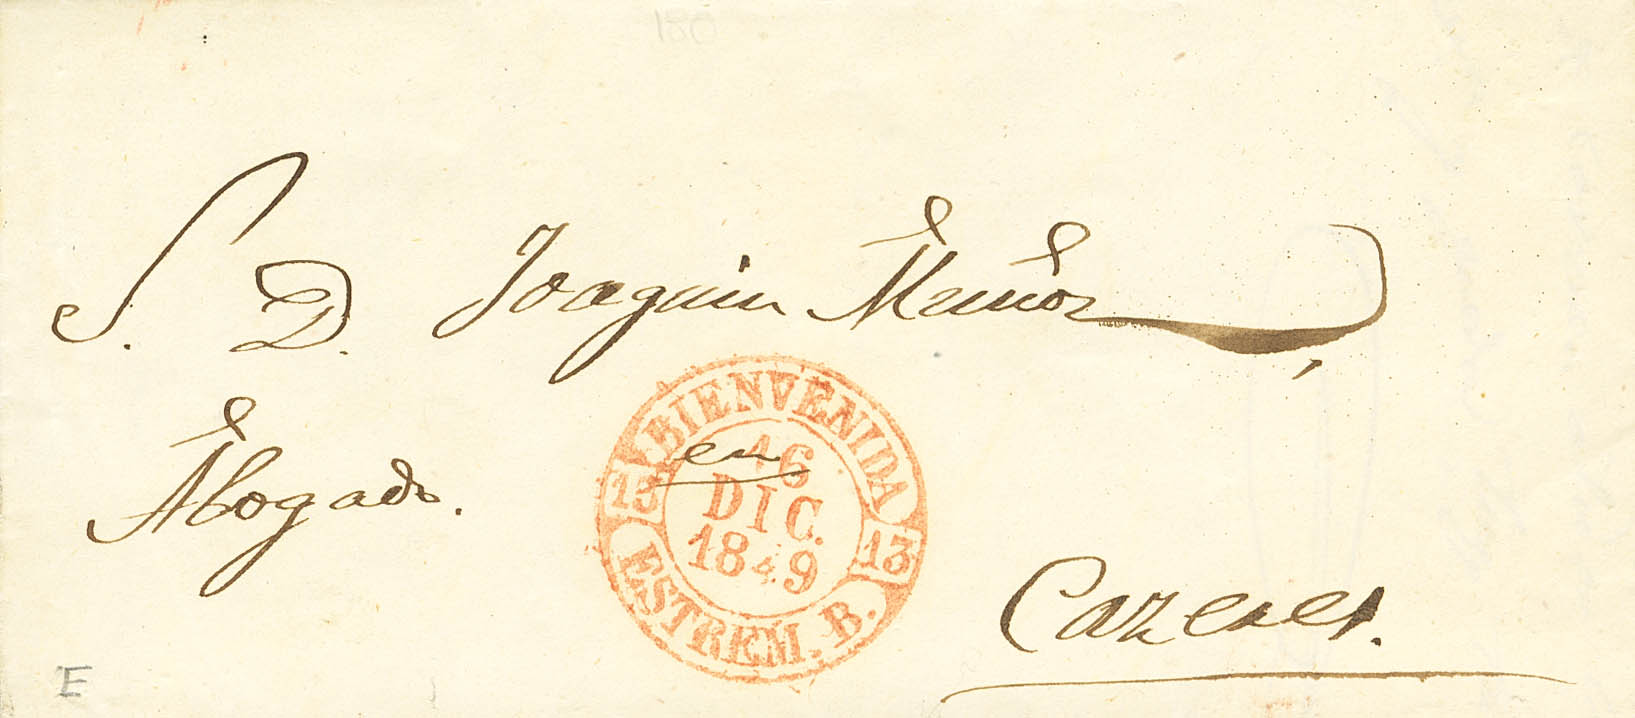 180
S. D. Joaquin Muñoz
Abogado.
en
BIENVENIDA
16
DIC.
1849
13
13
ESTREM. B.
Cazeres.
E